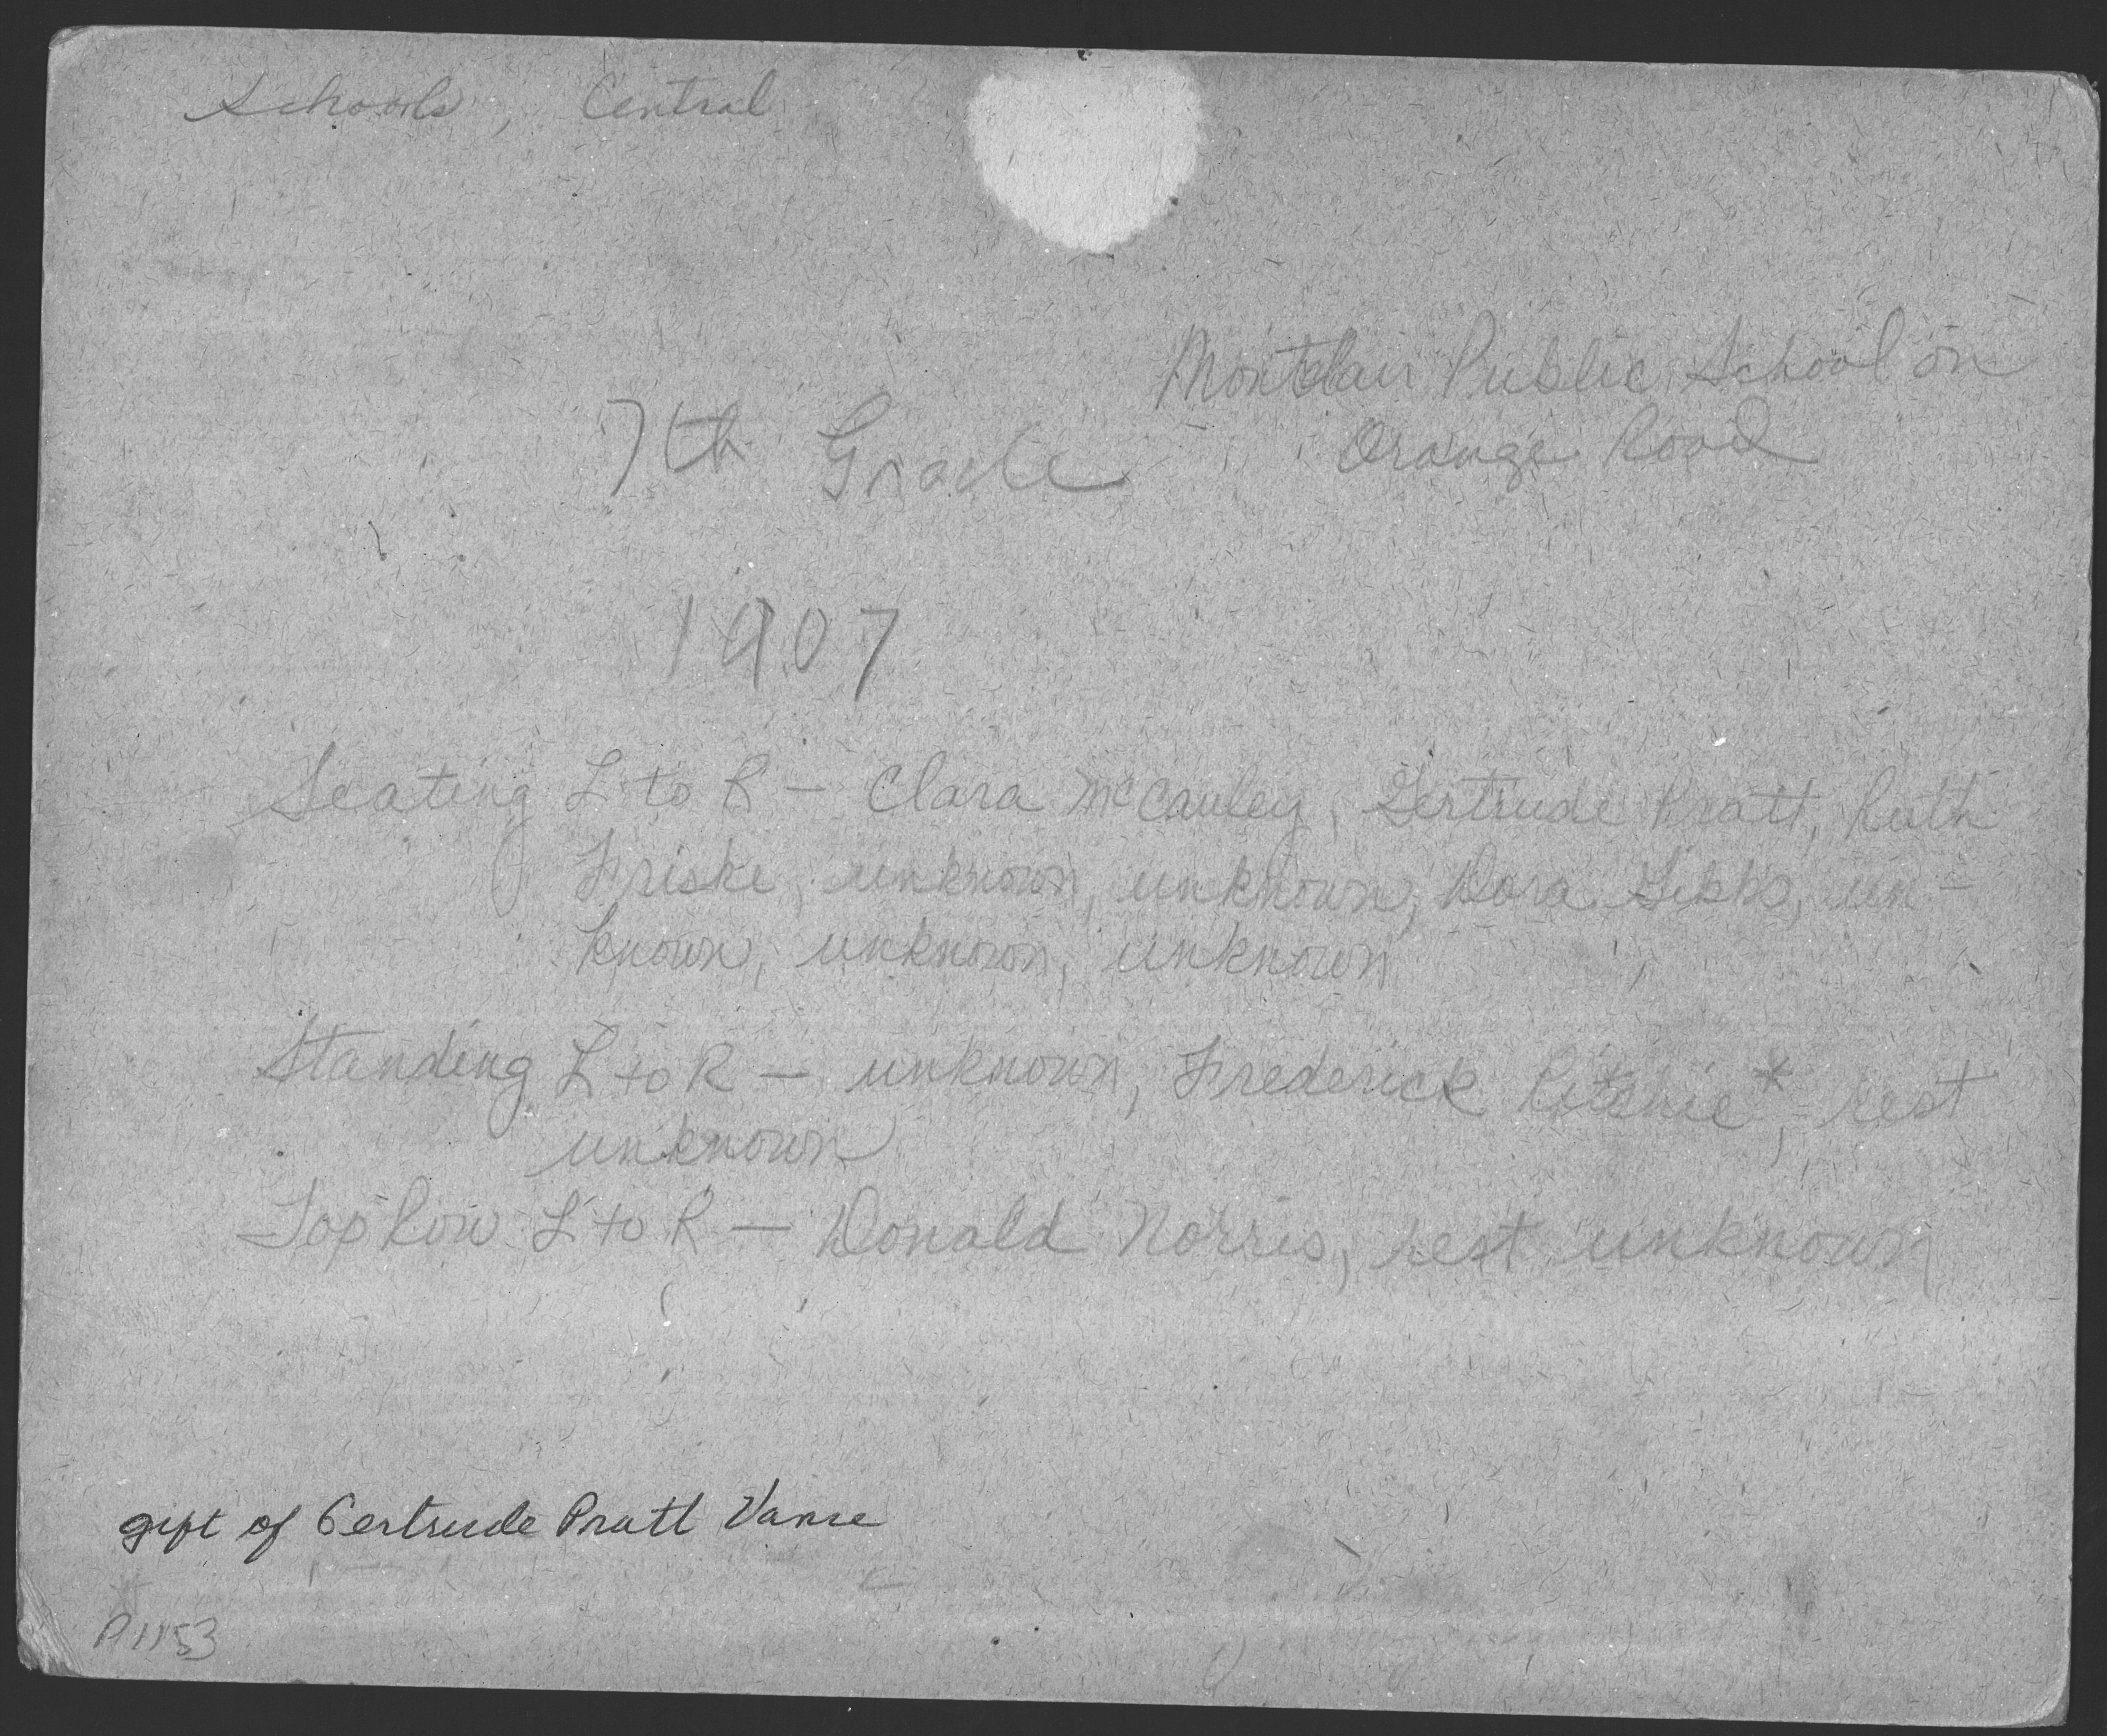 Schools, Central
Montclair Public School on
Orange Road
7th Grade
1907
Seating L to R – Clara McCauley, Gertrude Pratt, Ruth
Friske, unknown, unknown, Dora Gibbs, un-
known, unknown, unknown
Standing L to R – unknown, Frederick Ritchie*, rest
unknown
Top Row L to R – Donald Norris, rest unknown
gift of Gertrude Pratt Vance
P1153